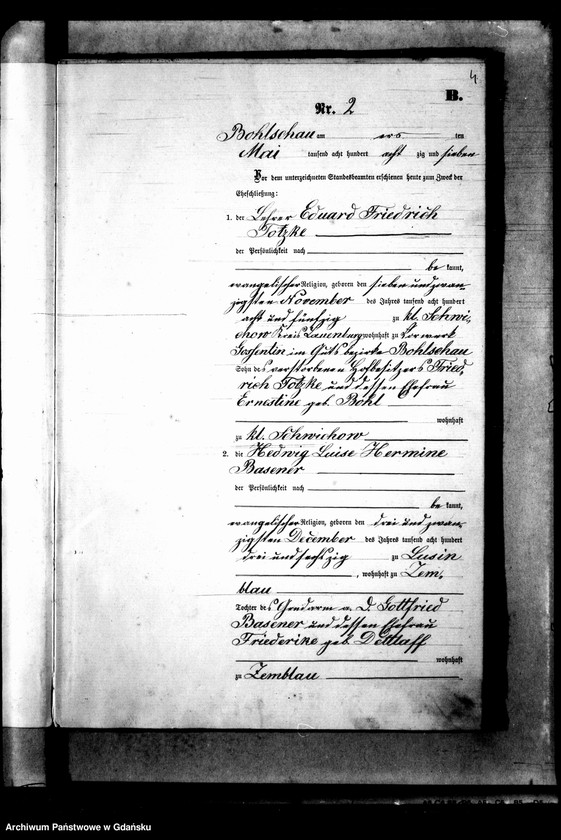 4
B.
Nr. 2
Bohlschau am ers ten
Mai tausend acht hundert acht zig und sieben
Vor dem unterzeichneten Standesbeamten erschienen heute zum Zweck der
Eheschließung:
1. der Lehrer Eduard Friedrich
Totzke
der Persönlichkeit nach
be kannt,
evangelischer Religion, geboren den sieben und zwan-
zigsten November des Jahres tausend acht hundert
acht und fünfzig zu kl. Schwi-
chow Kreis Lauenburg wohnhaft zu Vorwerk
im Gutsbezirke Bohlschau
Sohn des verstorbenen Hofbesitzers Fried,
rich Totzke und dessen Ehefrau
Ernestine geb. Bohl
wohnhaft
zu kl. Schwichow
2. die Hedwig Luise Hermine
Basener
der Persönlichkeit nach
be kannt,
evangelischer Religion, geboren den drei und zwan-
zigsten December des Jahres tausend acht hundert
drei und sechszig zu Lusin
, wohnhaft zu Zem,
blau
Tochter des Gendarm a. D. Gottfried
Basener und dessen Ehefrau
Friederike geb. Detlaff
wohnhaft
zu Zemblau
Archiwum Państwowe w Gdańsku